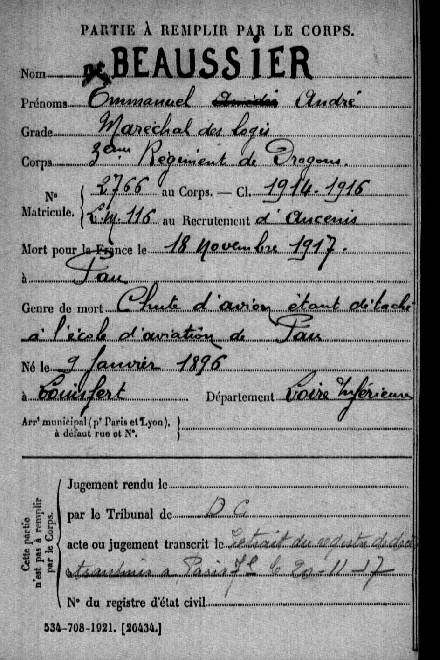 PARTIE À REMPLIR PAR LE CORPS.
Nom de BEAUSSIER
Prénoms Emmanuel Amédée André
Grade Maréchal des logis
Corps 3ème Régiment de Dragons.
N° Matricule. 2766 au Corps. — Cl. 1914-1916
L.M. 116 au Recrutement d'Ancenis
Mort pour la France le 18 novembre 1917.
à Pau
Genre de mort Chute d'avion étant détaché
à l'école d'aviation de Pau
Né le 9 Janvier 1896
à Louisfert Département Loire Inférieure
Arrt municipal (pr Paris et Lyon),
à défaut rue et N°.
Cette partie n'est pas à remplir par le Corps.
Jugement rendu le
par le Tribunal de D C
acte ou jugement transcrit le extrait du registre de
transmis à Paris 7e le 20-11-17
N° du registre d'état civil
534-708-1921. [26434.]